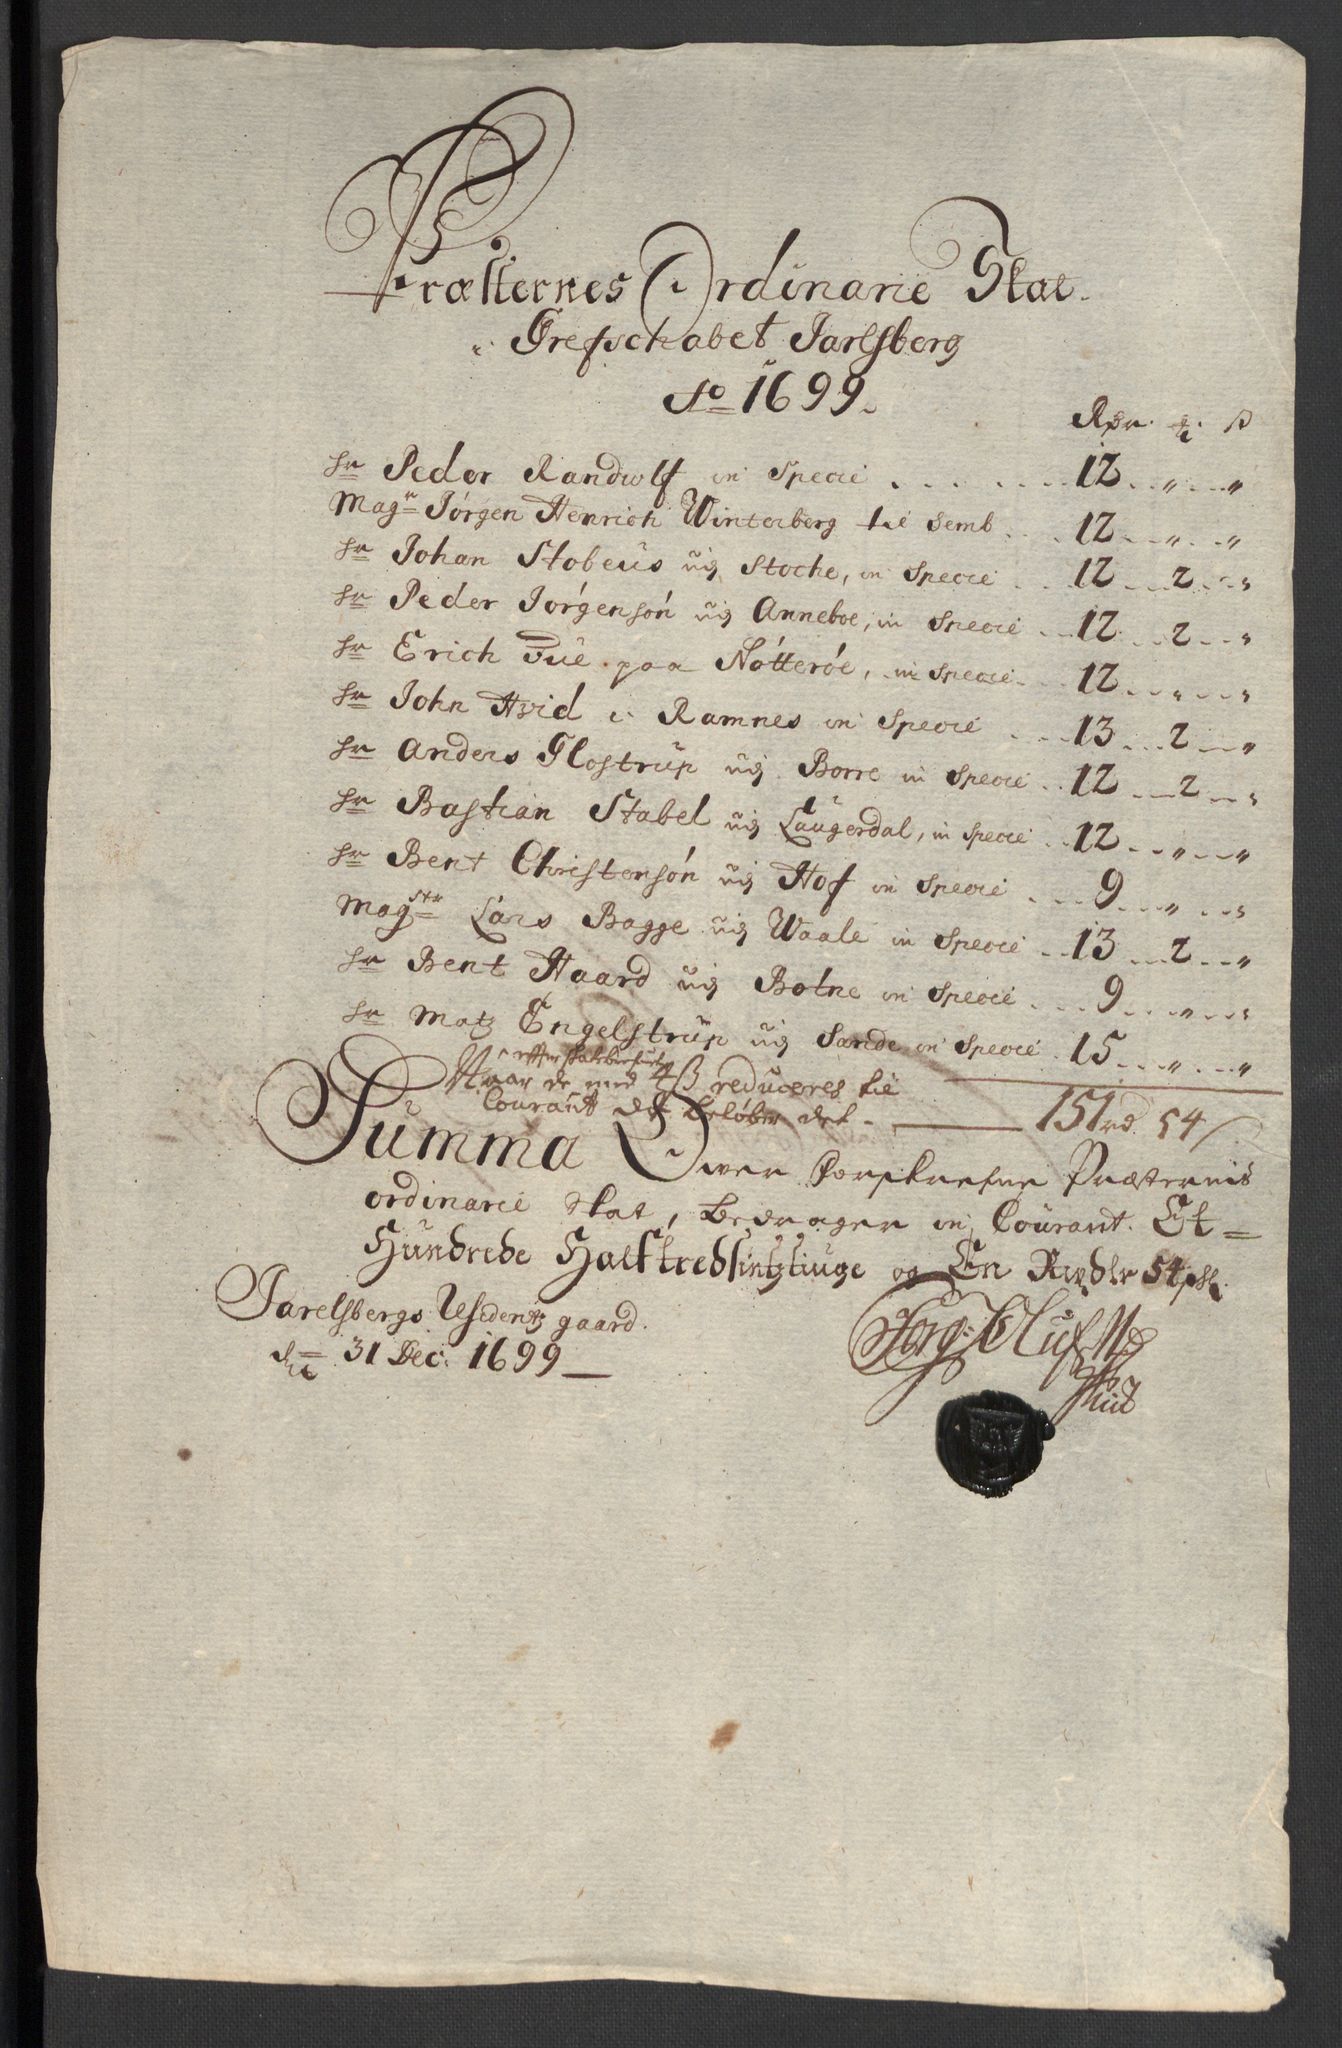 Præsternes Ordinarie Skat
i Grefschabet Jarlsberg
Ao 1699
Rdr. ß
Hr Peder Randwlf in Specie 12 " "
Magr Jørgen Henrich Winterberg til Semb 12 " "
Hr Johan Stobeus udj Stoche, in Specie 12 2 "
Hr Peder Jørgensøn udj Anneboe, in Specie 12 2 "
Hr Erich Tue paa Nøtterøe, in Specie 12 " "
Hr John Hvid i Ramnes in Specie 13 2 "
Hr Anders Glostrup udj Borre in Specie 12 2 "
Hr Bastian Stabel udj Laugerdal, in Specie 12 " "
Hr Bent Christensøn udj Hof in Specie 9 " "
Magstr Lars Bagge udj Waale in Specie 13 2 "
Hr Bent Haard udj Botne in Specie 9 " "
Hr Matz Engelstrup udj Sande in Specie 15 " "
efter
Naar de med 4 ß reduceres til
Courant da beløber det 151 rd 54
Summa Ower forskrefne Præsternis
ordinarie skat, bedrager in Courant Et
Hundrede Halftredsintztiuge og En Rixdlr 54 sk
Jarelsbergs Residentz gaard.
dn 31 Dec: 1699